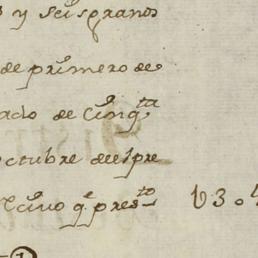 y seis granos
de primero de
ado de Cinq.ta
octubre del pre
q.e pres.to V3 o